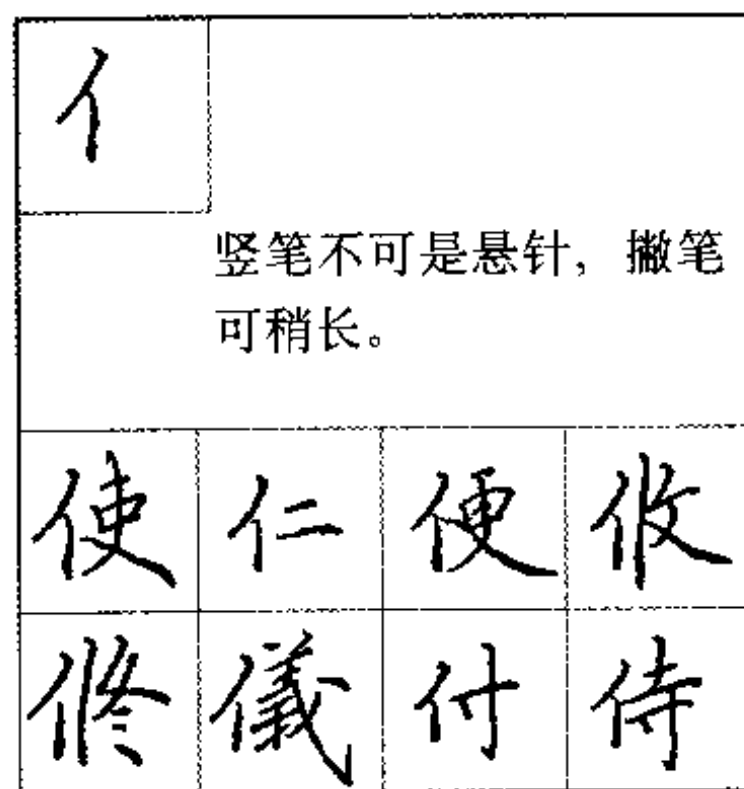 亻
竖笔不可是悬针，撇笔
可稍长。
使仁便攸
修儀付侍